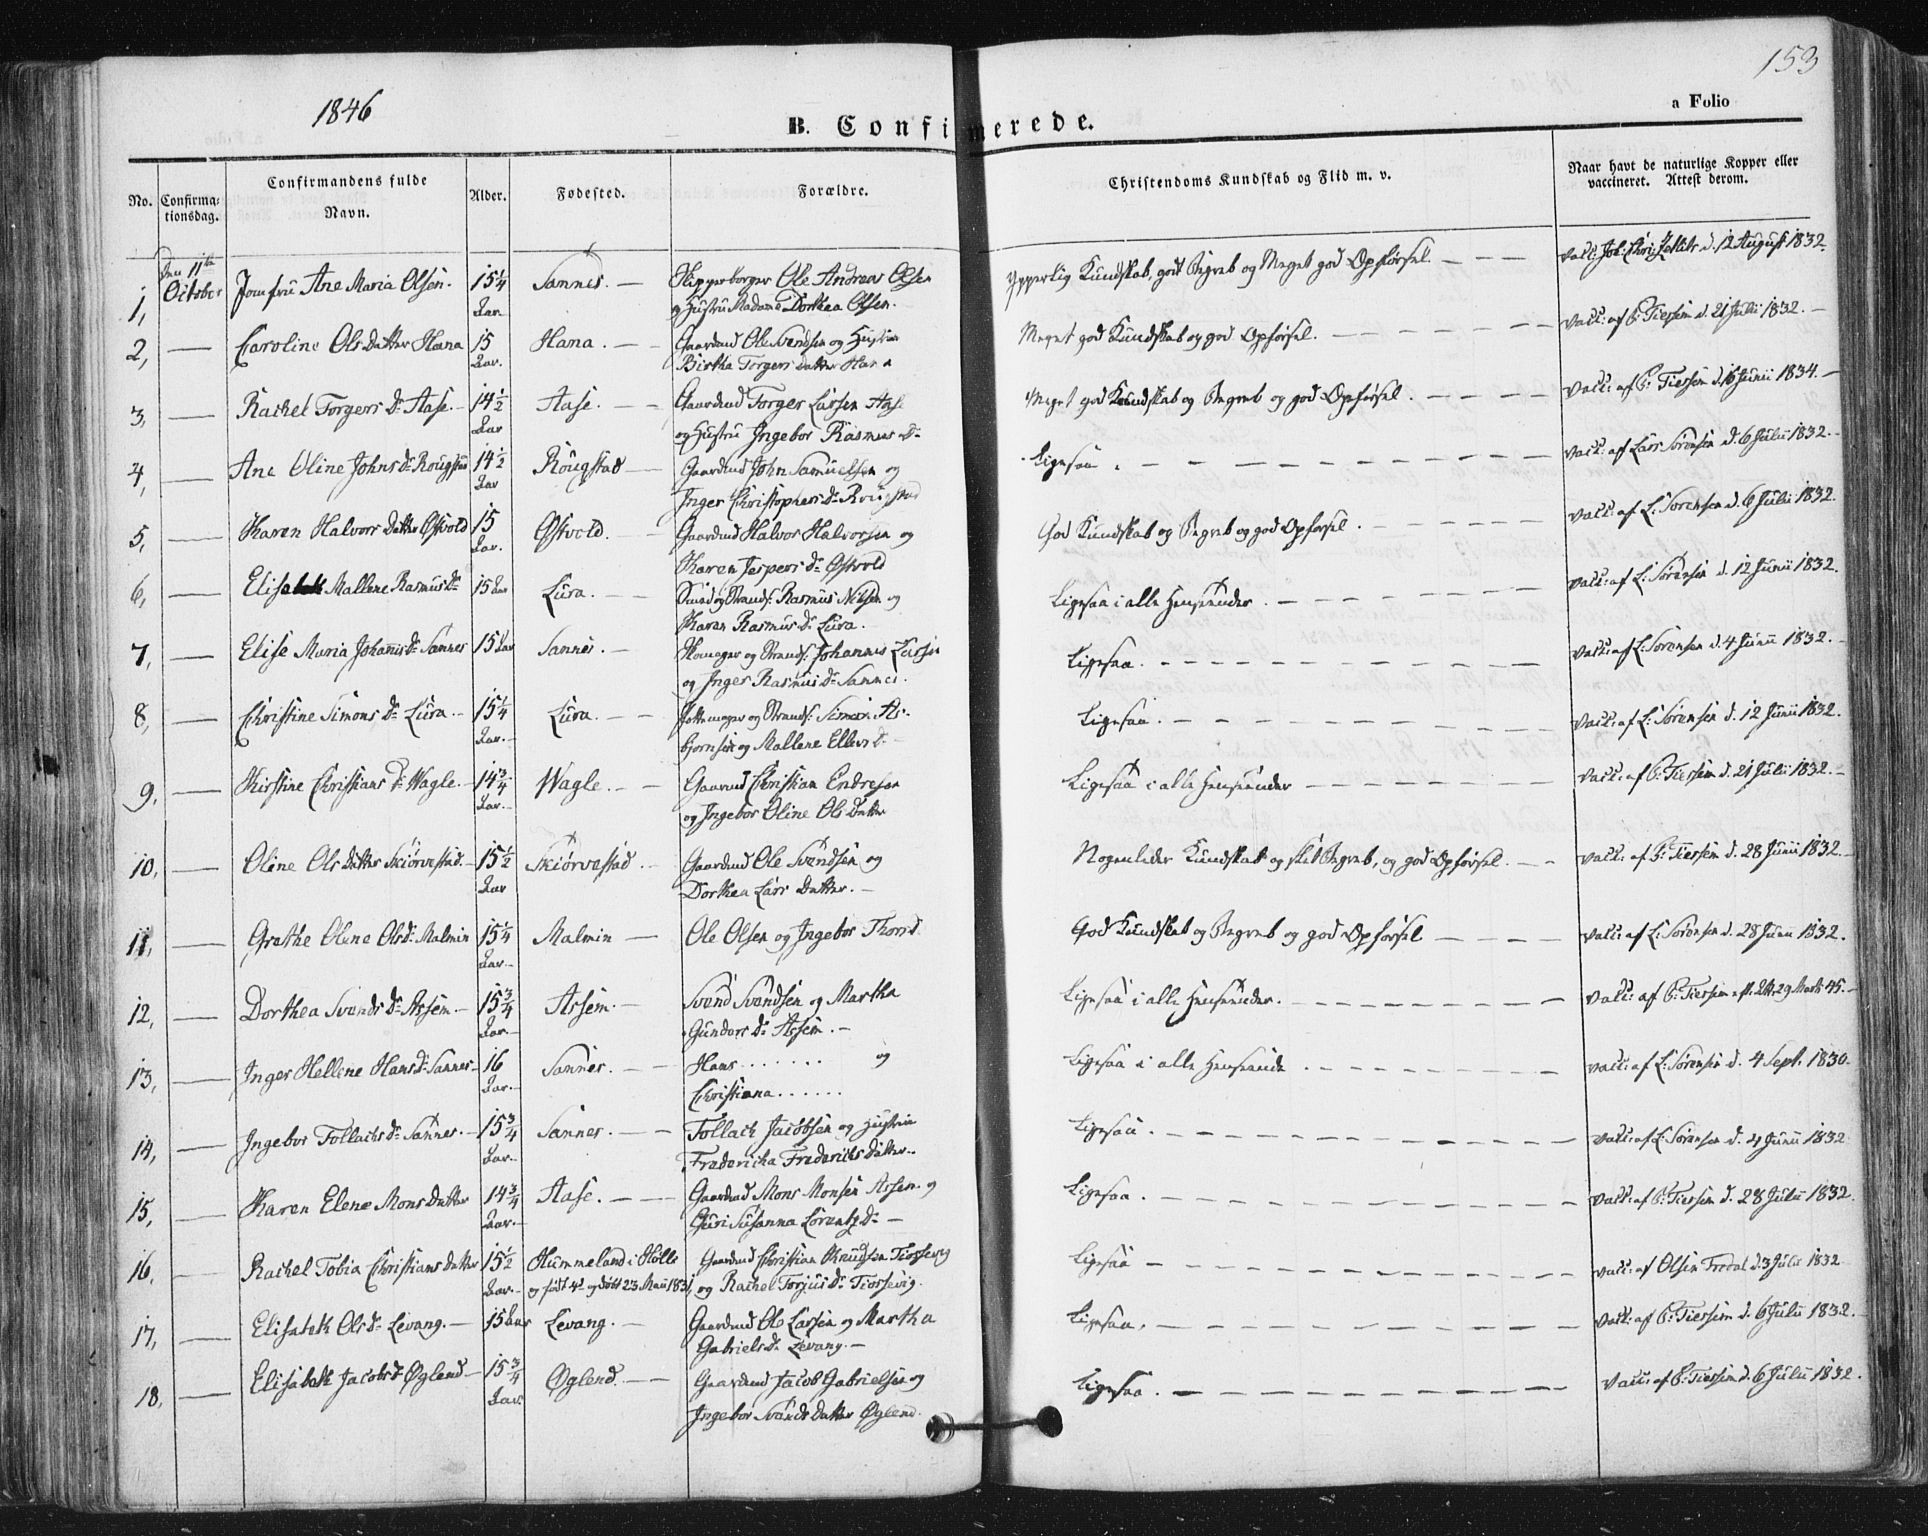 153
1846
a Folio
B. Confirmerede.
No. Confirma-tionsdag. Confirmandens fulde Navn. Alder. Fødested. Forældre. Christendoms Kundskab og Flid m. v. Naar havt de naturlige Kopper eller vaccineret. Attest derom.
1, Den 11te October Jomfru Ane Maria Olsen. 15 1/4 Aar Sannes. Skipperborger Ole Andreas Olsen Ypperlig Kundskab, god Begreb og Meget god Opførsel. vacc: Joh: Chri: Zetlitz d. 12 August 1832.
og Hustru Madame Dorthea Olsen.
2, Caroline Ols Datter Hana 15 Aar. Hana. Gaardmd Ole Svendsen og Hustru Meget god Kundskab og god Opførsel. vacc: af P: Tiersen d. 21 Julii 1832.
Birtha Torgers Datter Hana
3, Rachel Torgers D: Aase. 14 1/2 Aar Aase. Gaardmd Torger Larsen Aase Meget god Kundskab og Begreb og god Opførsel. vacc: af P: Tiersen d. 16 Junii 1834.
og Hustru Ingebor Rasmus D:
4, Ane Oline Johns D: Rougstad 14 1/2 Aar Rougstad Gaardmd John Samuelsen og Ligesaa. vacc: af Lars Sørensen d. 6 Julii 1832.
Inger Christophers D: Rougstad
5, Karen Halvors Datter Østvold 15 Aar. Østvold. Gaardmd Halvor Halvorsen og God Kundskab og Begreb og god Opførsel. vacc: af L: Sørensen d. 6 Julii 1832.
Karen Jespers D: Østvold
6, Elisabeth Mallene Rasmus D: 15 Aar Lura. Smed og Strands: Rasmus Nilsen og Ligesaa i alle Henseender. vacc: af L: Sørensen d. 12 Junii 1832.
Karen Rasmus D: Lura.
7, Elise Maria Johannis D: Sannes 15 Aar Sannes. Skomager og Strands: Johannes Larsen Ligesaa. vacc: af L: Sørensen d. 4 Junii 1832.
og Inger Rasmus D: Sannes.
8, Christine Simons D: Lura. 15 1/4 Aar. Lura. Pottemager og Strands: Simon As- Ligesaa. vacc: af L: Sørensen d. 12 Junii 1832.
bjørnsen og Mallene Ellevs D.
9, Kirstine Christians D: Wagle. 14 3/4 Aar. Wagle. Gaardmd Christian Endresen Ligesaa i alle Henseender vacc: af P: Tiersen d. 21 Julii 1832.
og Ingebor Oline Ols Datter
10, Oline Ols Datter Skiørvestad. 15 1/2 Aar Skiørvestad. Gaardmd Ole Svendsen og Nogenledes Kundskab og slet Begreb, og god Opførsel. vacc: af P: Tiersen d. 28 Junii 1832.
Dorthea Lars Datter.
11, Grethe Oline Ols D: Malmin 15 1/4 Aar. Malmin Ole Olsen og Ingebor Thors D. God Kundskab og Begreb og god Opførsel vacc: af L: Sørensen d. 28 Junii 1832.
12, Dorthea Svends D: Assem. 15 3/4 Aar. Assem. Svend Svendsen og Martha Ligesaa i alle Henseender. vacc: af P: Tiersen Att: 29 Marts 45.
Gundors D: Assem.
13, Inger Hellene Hans D: Sannes 16 Aar. Sannes. Hans . . . . . . . og Ligesaa i alle Henseende vacc: af L: Sørensen d. 4 Sept. 1830.
Christiana . . . . . .
14, Ingebor Tollachs D: Sannes. 15 3/4 Aar. Sannes. Tollach Jacobsen og Hustru Ligesaa. vacc: af L: Sørensen d. 4 Junii 1832
Fredericka Fredericks Datter.
15, Karen Elene Mons Datter 14 3/4 Aar. Aase. Gaardmd Mons Monsen Assen og Ligesaa. vacc: af P: Tiersen d. 28 Julii 1832.
Guri Susanna Lorentz D:
16, Rachel Tobia Christians Datter 15 1/2 Aar. Hummeland i Holle Gaardmd Christian Knudsen Tiorsevig Ligesaa vacc: af Olsen Tredal d. 3 Julii 1832
og født 4de og døbt 23 Maii 1831, og Rachel Torjus D: Tiorsevig.
17, Elisabeth Ols D: Levang. 15 Aar Levang. Gaardmd Ole Larsen og Martha Ligesaa. vacc: af P: Tiersen d. 6 Julii 1832.
Gabriels D: Levang.
18, Elisabeth Jacobs D: Øglend 15 3/4 Aar. Øglend. Gaardmd Jacob Gabrielsen og Ligesaa. vacc: af P: Tiersen d. 6 Julii 1832.
Ingebor Svends Datter Øglend.